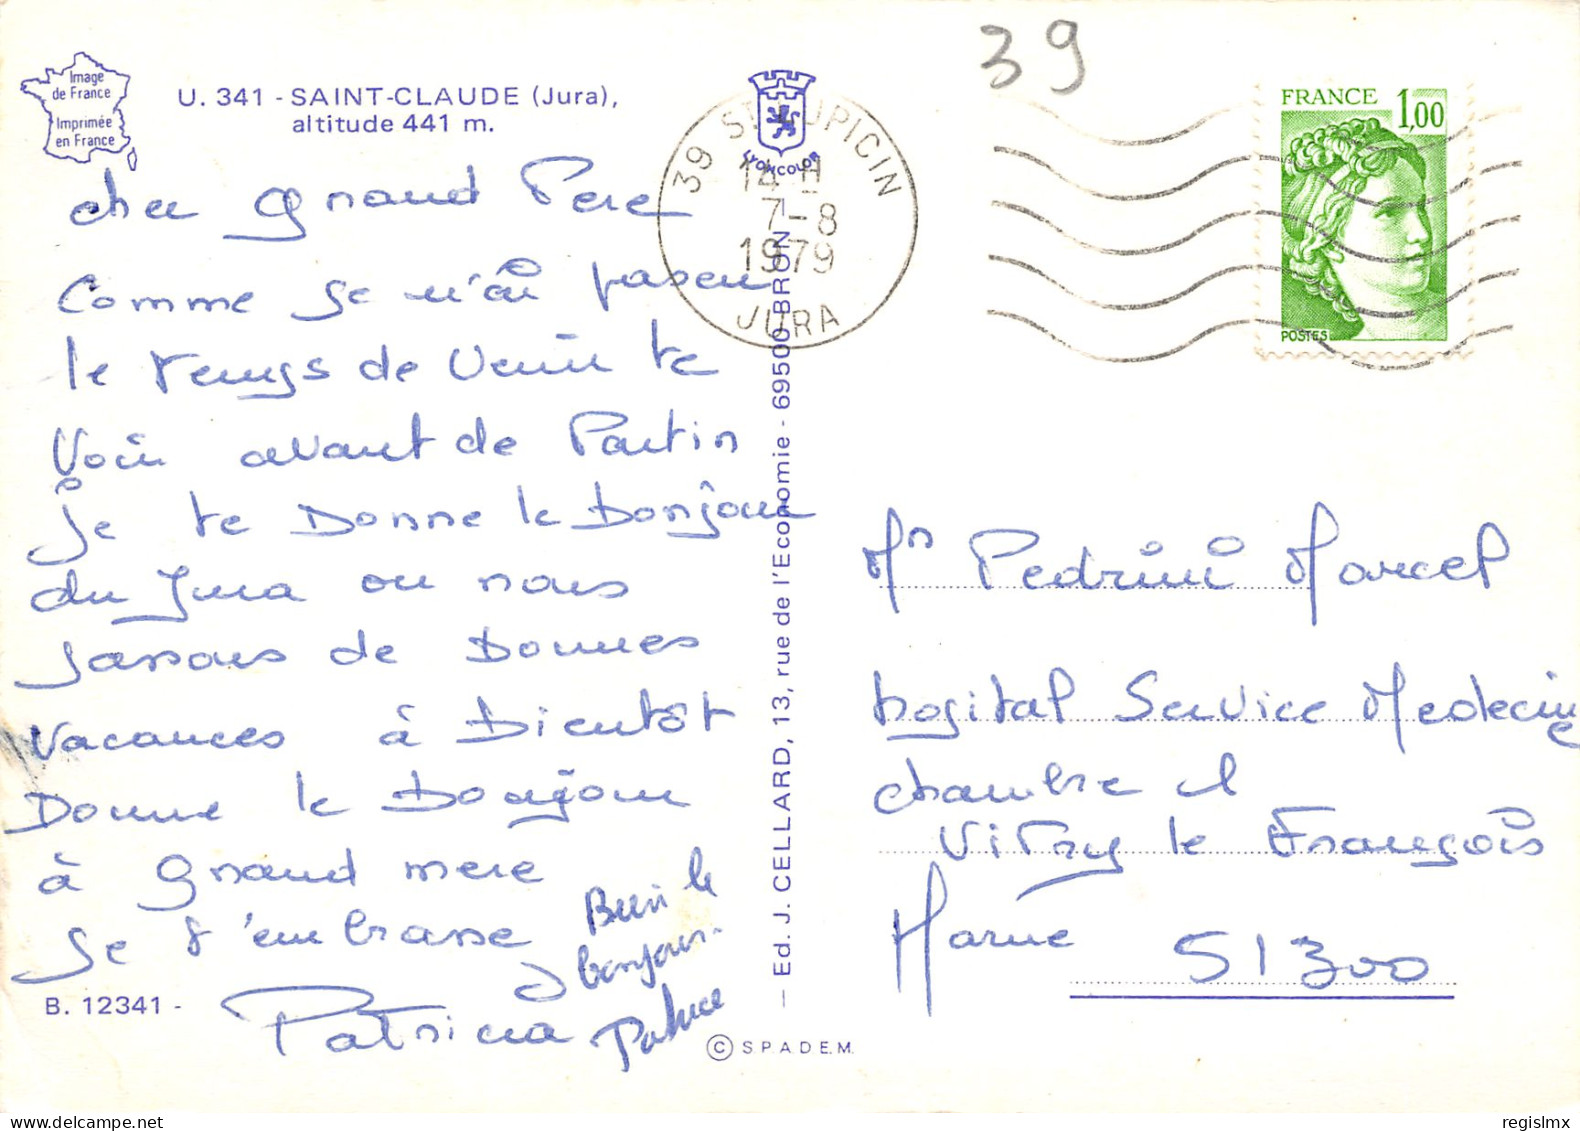 Image
de France
Imprimée
en France
U. 341 - SAINT-CLAUDE (Jura),
altitude 441 m.
39
39 ST LUPICIN
14 H
7-8
1979
JURA
LYONCOLOR
FRANCE 1,00
POSTES
cher Grand Pere
Comme je n'ai pas eu
le temps de venir te
Voir avant de Partir
Je te Donne le Bonjour
du Jura ou nous
passons de Bonnes
Vacances à Bientôt
Donne le Bonjour
à Grand mere
Je t'embrasse
Patricia
Bien le
bonjour
Patrice
B. 12341 -
— Ed. J. CELLARD, 13, rue de l'Economie - 69500 BRON -
© S.P.A.D.E.M.
Mr Pedrini Marcel
hopital Service Medecine
chambre
Vitry le François
Marne
51300
regislmx